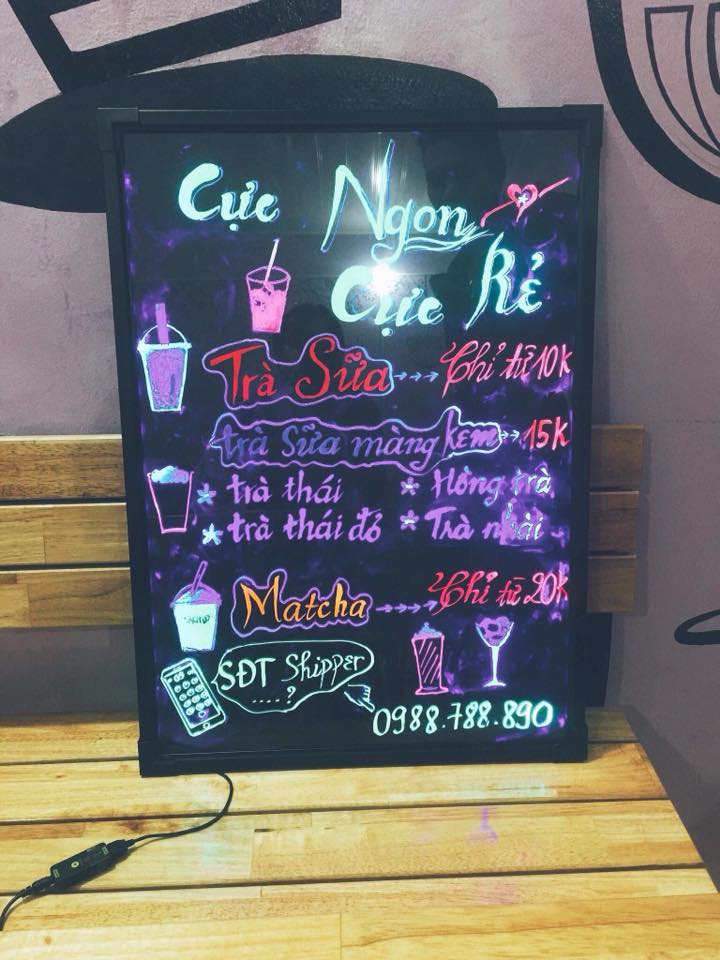 Cực Ngon
Cực Rẻ
Trà Sữa Chỉ từ 10k
trà sữa màng kem 15k
* trà thái * Hồng trà
* trà thái đỏ * Trà nhài
Matcha Chỉ từ 20k
SĐT Shipper
....?
0988.788.890